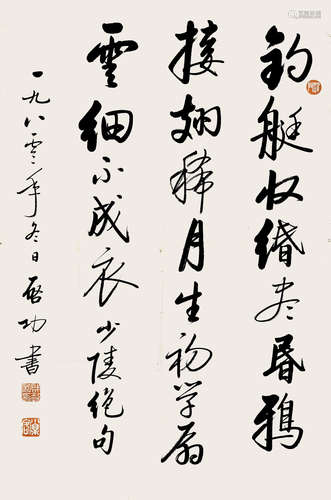 钓艇收缗尽昏鸦
接翅稀月生初学扇
云细不成衣少陵绝句
一九八零年冬日启功书